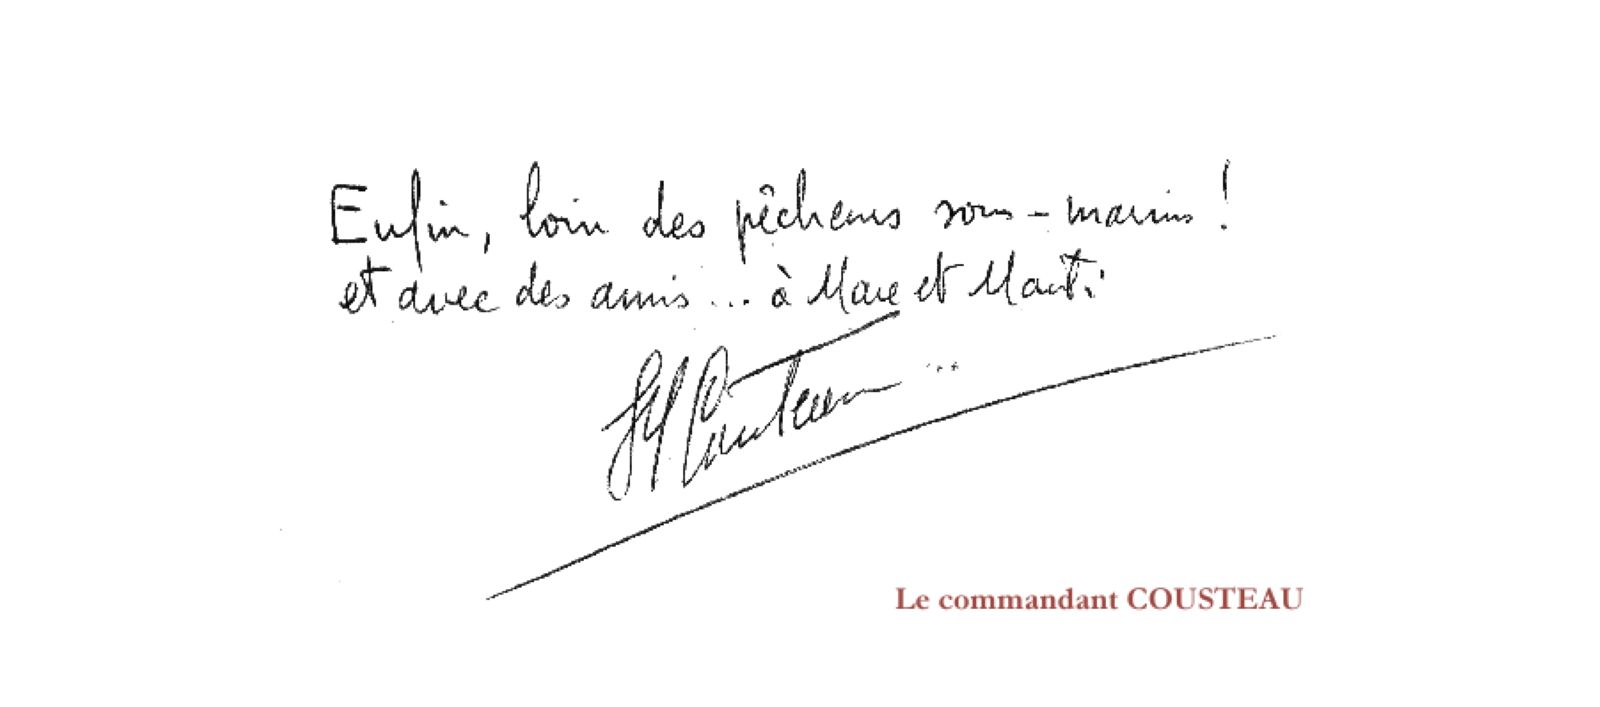 Enfin, loin des pêcheurs sous-marins !
et avec des amis... à Marc et Marti
JY Cousteau ...
Le commandant COUSTEAU